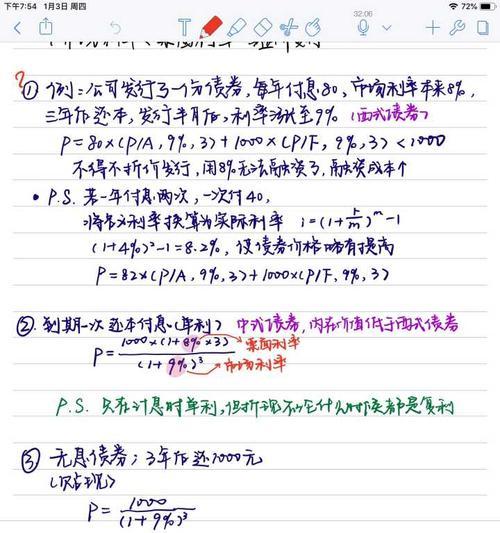 下午7:54 1月3日 周四
72%
32:06
? ① 例：公司发行了一个债券，每年付息80，市场利率本来8%，
三年后还本，发行半月后，利率涨至9%（西式债券）
P=80×(P/A, 9%, 3)+1000×(P/F, 9%, 3)<1000
不得不折价发行，用8%无法融资了，融资成本个
• P.S. 若一年付息两次，一次付40，
将名义利率换算为实际利率 i=(1+r/m)^m-1
(1+4%)²-1=8.2%，使债券价格略有提高
P=82×(P/A, 9%, 3)+1000×(P/F, 9%, 3)
②. 到期一次还本付息（单利） 中式债券，内在价值低于西式债券
P=1000×(1+8%×3)/(1+9%)³ → 票面利率
→ 市场利率
P.S. 只在计息时单利，但折现不论什么时候都是复利
③ 无息债券：3年后还1000元
（贴现）
P=1000/(1+9%)³